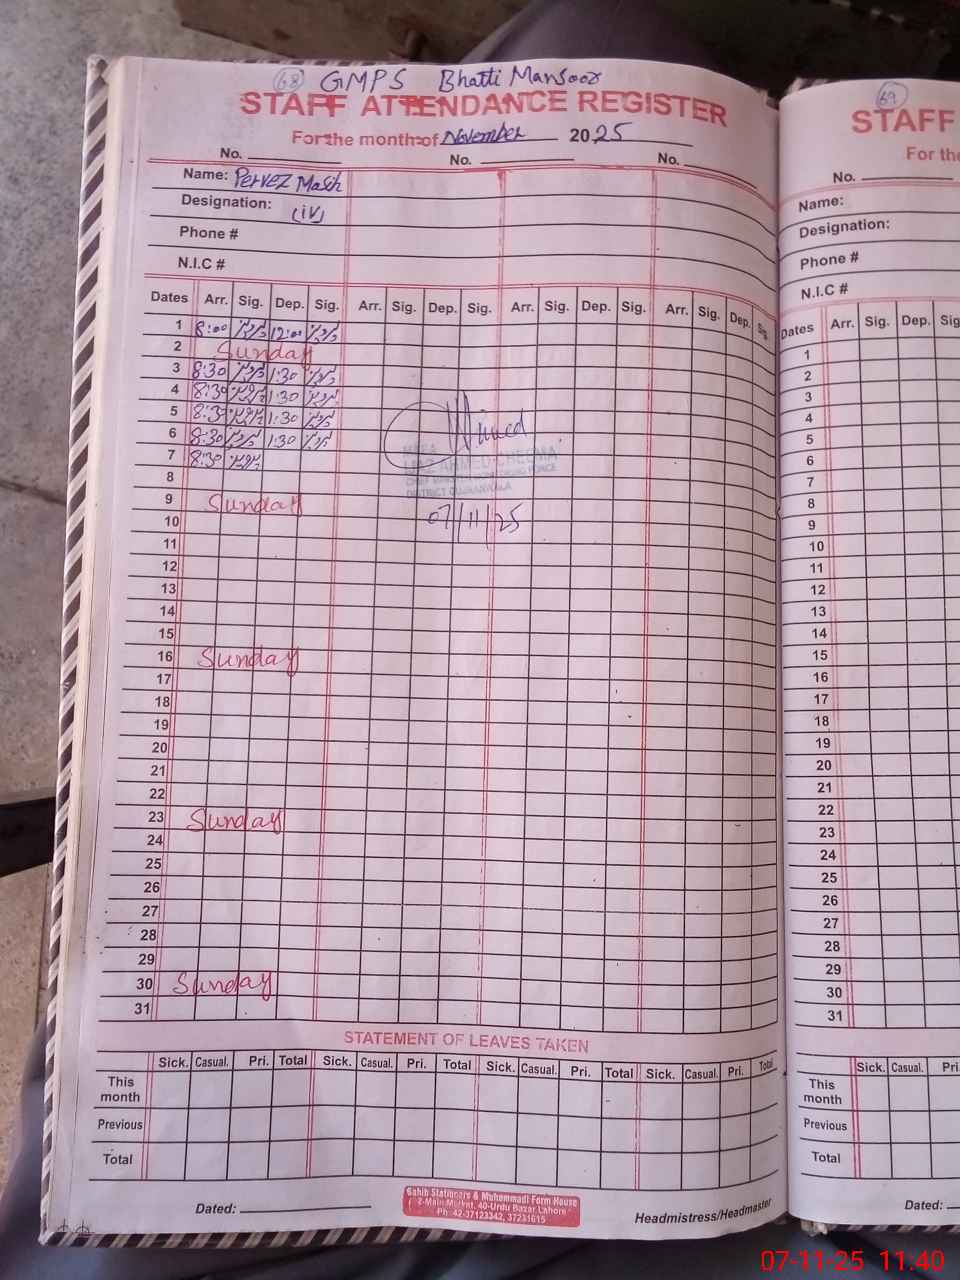 68 GMPS Bhatti Mansoor
STAFF ATTENDANCE REGISTER
For the month of November 2025
No. No. No.
Name: Pervez Masih
Designation: (iv)
Phone #
N.I.C #
Dates Arr. Sig. Dep. Sig. Arr. Sig. Dep. Sig. Arr. Sig. Dep. Sig. Arr. Sig. Dep. Sig.
1 8:00 12:00
2 Sunday
3 8:30 1:30
4 8:30 1:30
5 8:30 1:30
6 8:30 1:30
7 8:30
8
9 Sunday
10
11
12
13
14
15
16 Sunday
17
18
19
20
21
22
23 Sunday
24
25
26
27
28
29
30 Sunday
31
Ahmed
AHMED CHEEMA
DISTRICT GUJRANWALA
07/11/25
STATEMENT OF LEAVES TAKEN
Sick. Casual. Pri. Total Sick. Casual. Pri. Total Sick. Casual. Pri. Total Sick. Casual. Pri. Total
This month
Previous
Total
Dated:
Sahib Stationers & Muhammadi Form House
2-Main Market, 40-Urdu Bazar Lahore
Ph: 42-37123342, 37231615
Headmistress/Headmaster
69
STAFF
For the
No.
Name:
Designation:
Phone #
N.I.C #
Dates Arr. Sig. Dep. Sig
1
2
3
4
5
6
7
8
9
10
11
12
13
14
15
16
17
18
19
20
21
22
23
24
25
26
27
28
29
30
31
Sick. Casual. Pri
This month
Previous
Total
Dated:
07-11-25 11:40